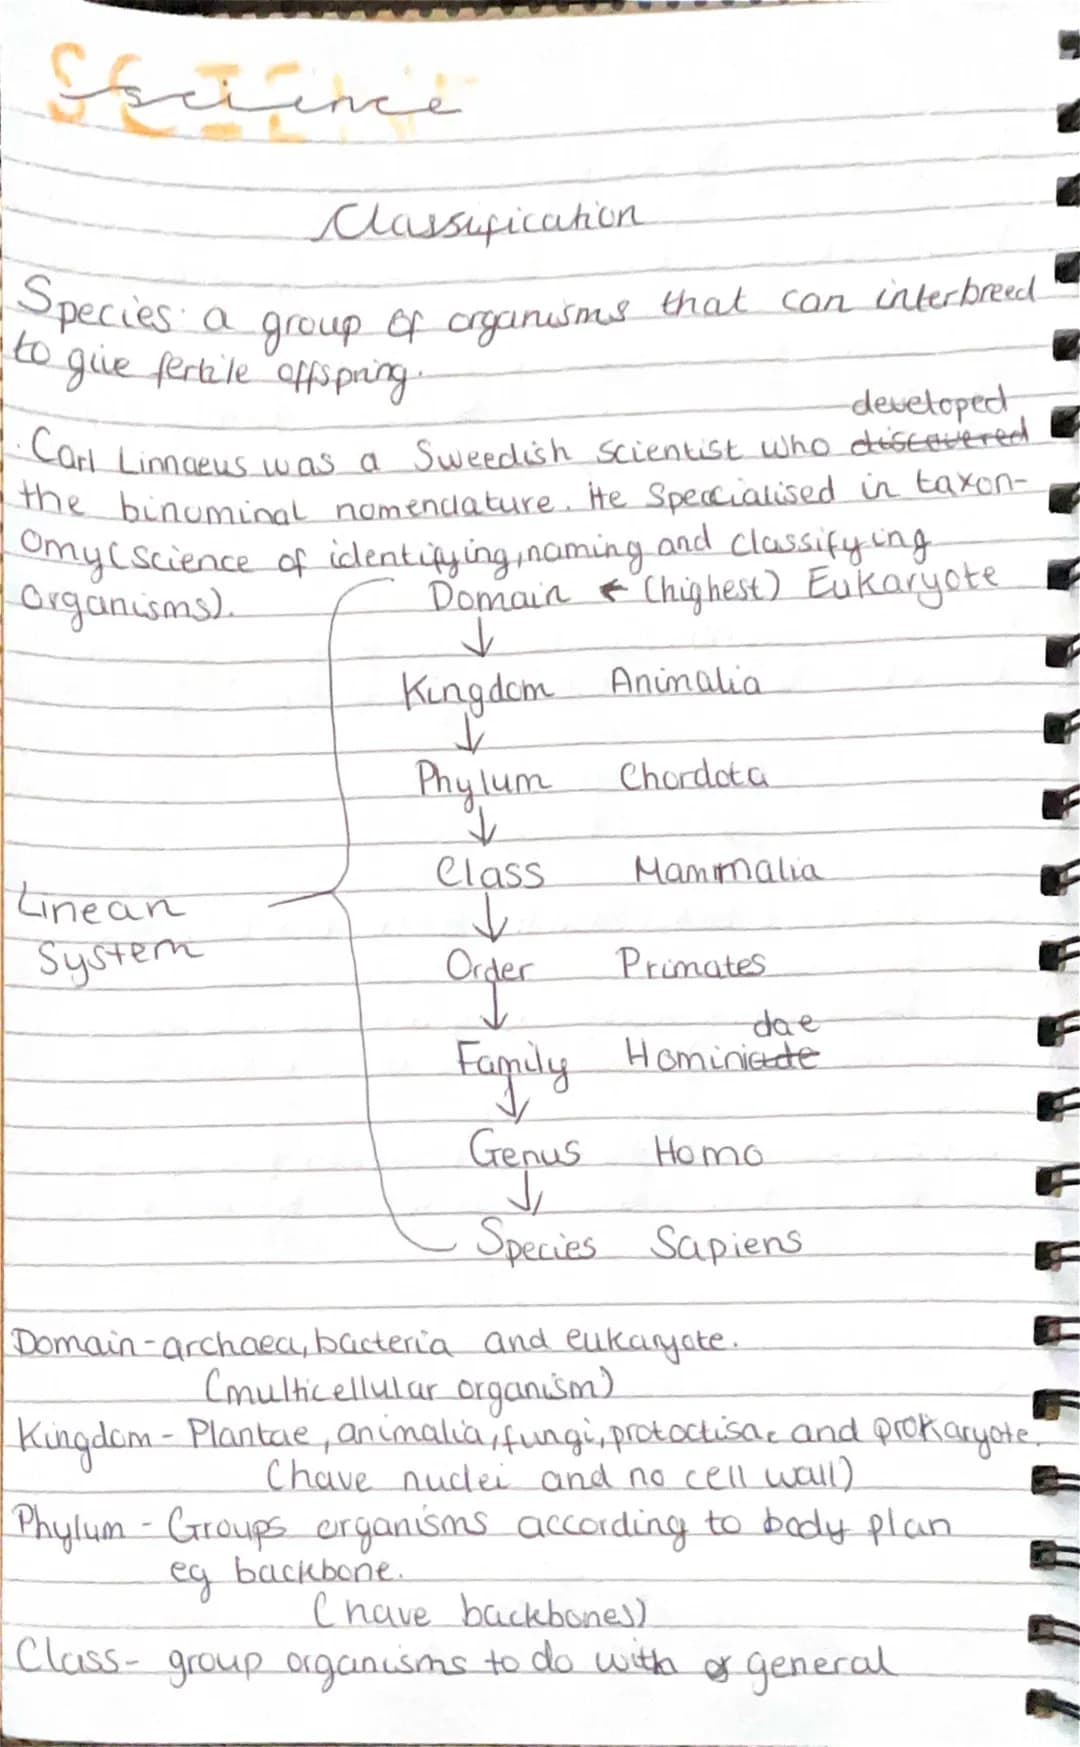 Science
Classification
Species: a group of organisms that can interbreed
to give fertile offspring.
developed
Carl Linnaeus was a Sweedish Scientist who discovered
the binominal nomenclature. He Speccialised in taxon-
omy (science of identifying, naming and classifying
Organisms).
Domain ← (highest) Eukaryote
↓
Kingdom Animalia
↓
Phylum Chordota
↓
Class Mammalia
Linean
System
↓
Order Primates
↓
dae
Family Hominiade
↓
Genus Homo
↓
Species Sapiens
Domain - archaea, bacteria and eukaryote.
(multicellular organism)
Kingdom - Plantae, animalia, fungi, protoctisae and prokaryote.
(have nuclei and no cell wall)
Phylum - Groups organisms according to body plan
eg backbone.
(have backbones)
Class - group organisms to do with general